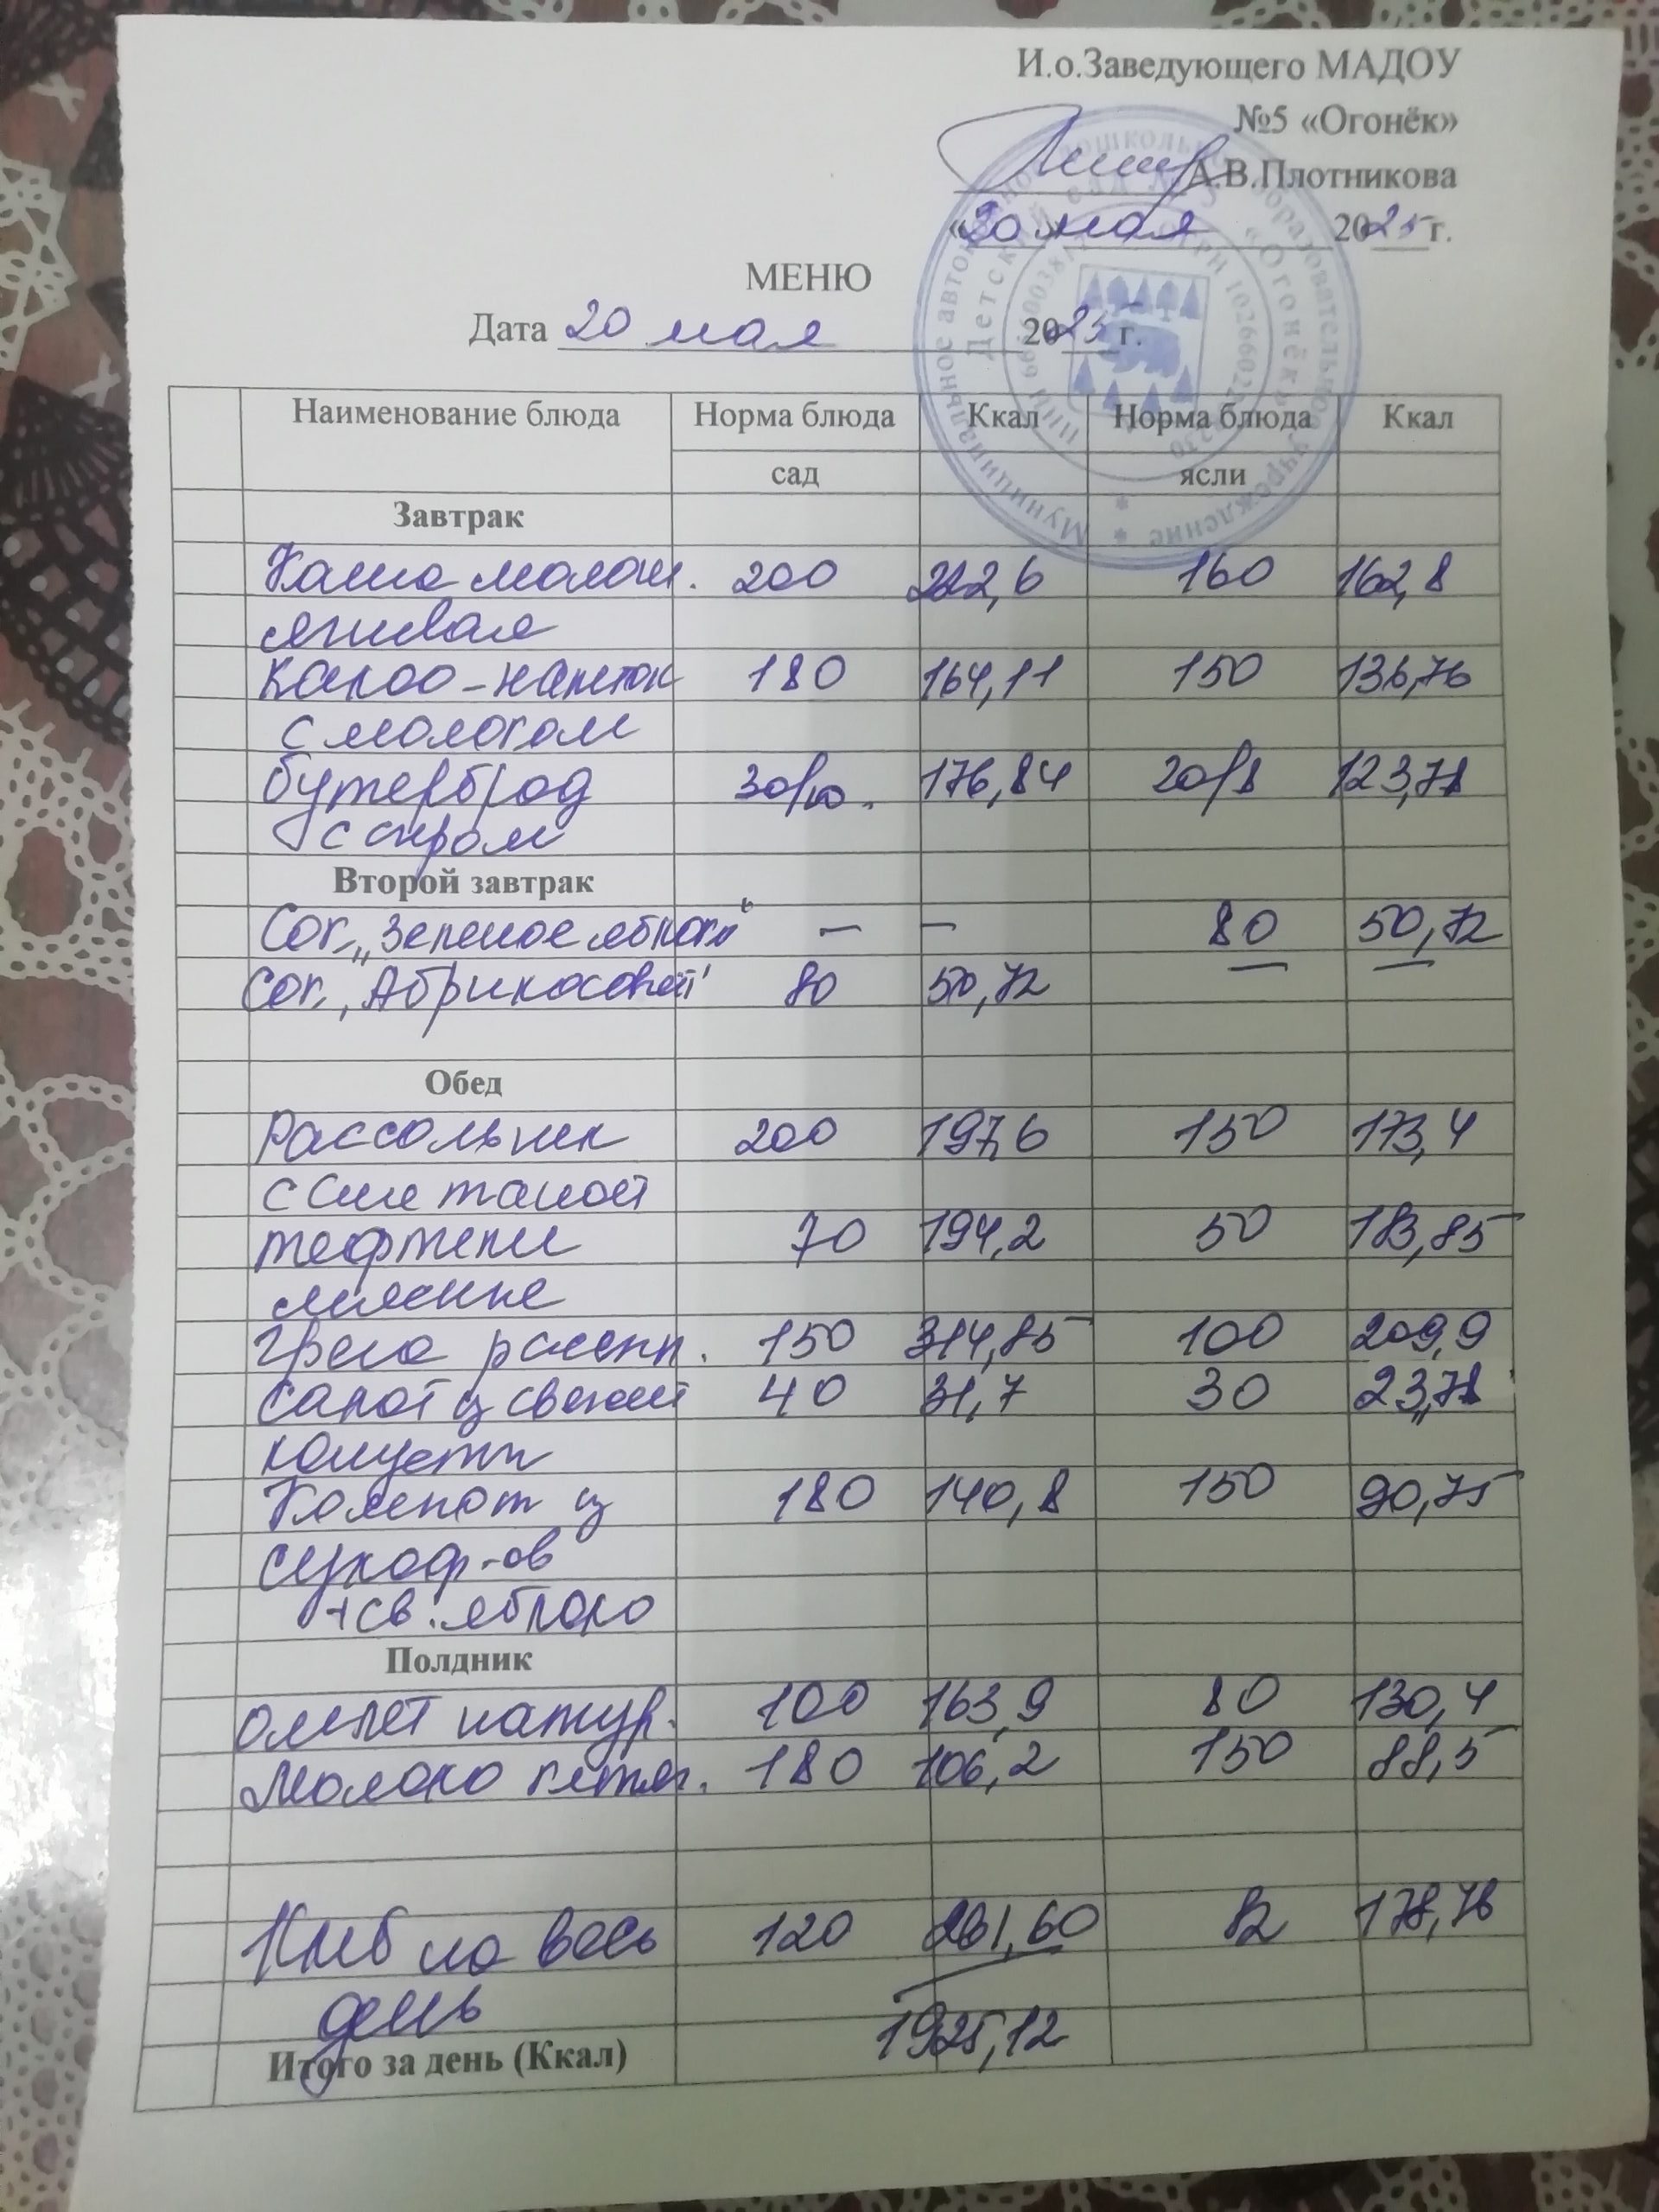 И.о.Заведующего МАДОУ
№5 «Огонёк»
А.В.Плотникова
«20» мая 2025 г.
МЕНЮ
Дата 20 мая 2025 г.
Наименование блюда Норма блюда Ккал Норма блюда Ккал
сад ясли
Завтрак
Каша молочн. 200 222,6 160 162,8
ячневая
Какао-напиток 180 164,11 150 136,76
с молоком
бутерброд 30/10. 176,84 20/8 123,78
с сыром
Второй завтрак
Сок „Зеленое яблоко“ — — 80 50,72
Сок „Абрикосовый" 80 50,72 — —
Обед
Рассольник 200 197,6 150 173,4
с сметаной
тефтели 70 194,2 50 183,85
мясные
Греча рассып. 150 314,85 100 209,9
Салат из свежей 40 31,7 30 23,78
капусты
Компот из 180 140,8 150 90,75
сухоф-ов
+св. яблоко
Полдник
омлет натур. 100 163,9 80 130,4
Молоко кипяч. 180 106,2 150 88,5
Хлеб на весь 120 261,60 82 178,76
день
1925,12
Итого за день (Ккал)